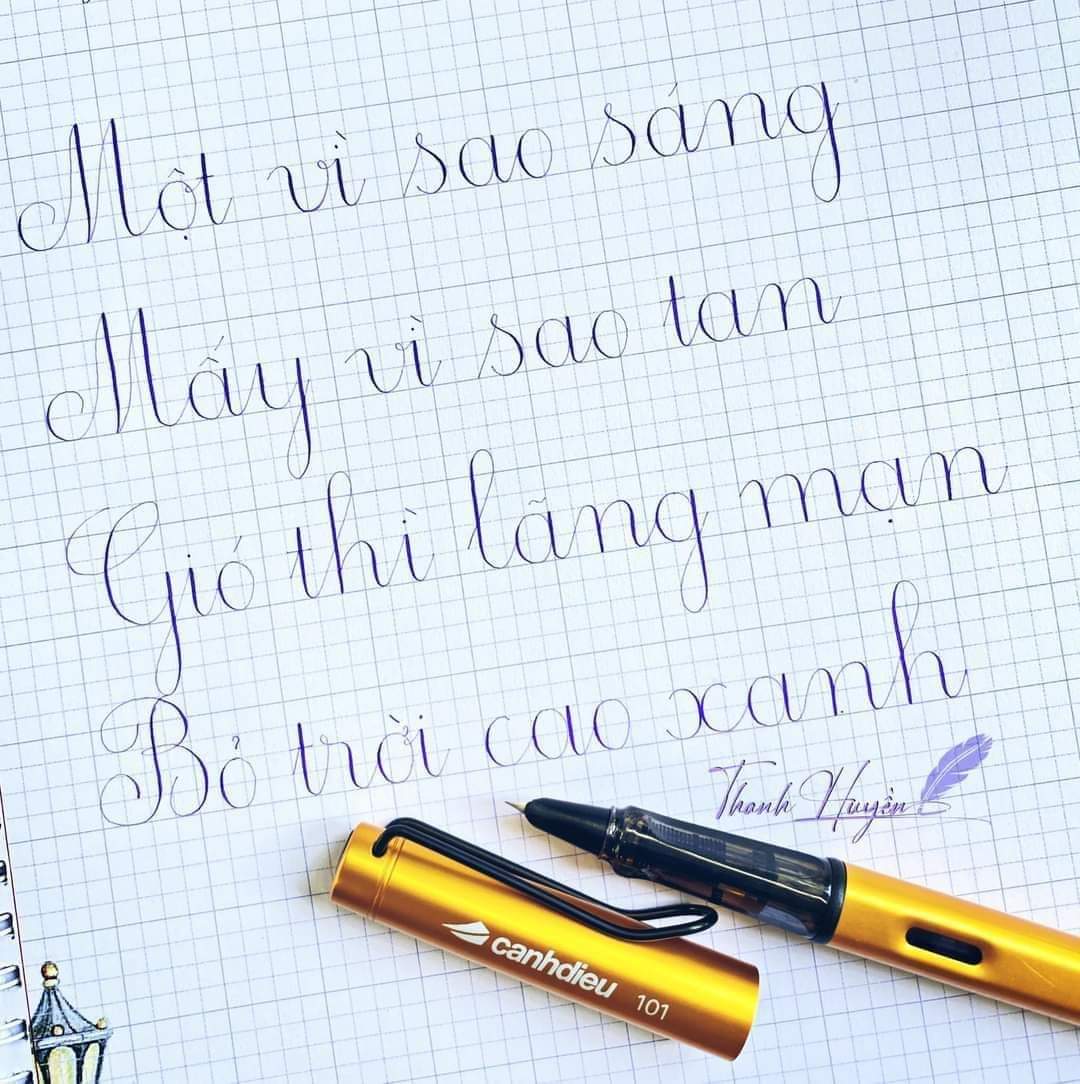 Một vì sao sáng
Mấy vì sao tan
Gió thì lãng mạn
Bỏ trời cao xanh
Thanh Huyền
canhdieu 101